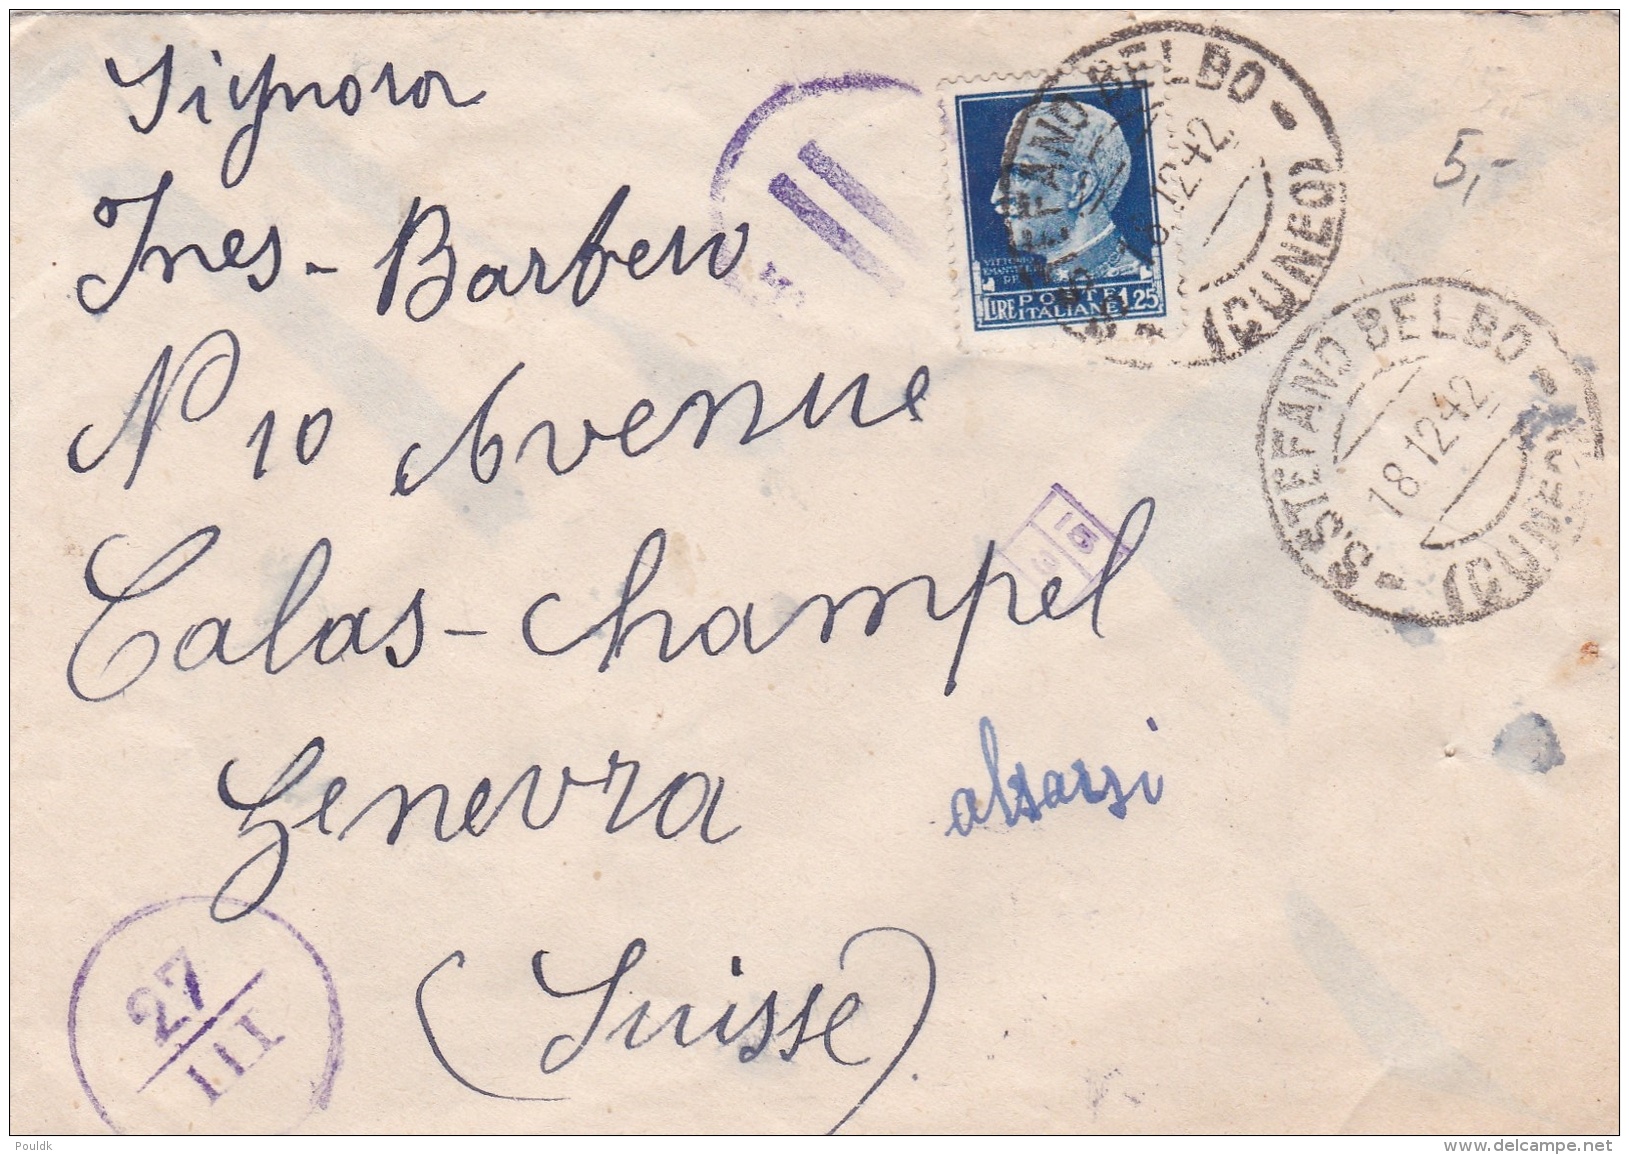 Signora
Ines - Barbero
N 10 Avenue
Calas - Champel
Genevra
(Suisse)
5,-
S. STEFANO BELBO
18.12.42
(CUNEO)
VITTORIO
EMANUELE
POSTE
LIRE ITALIANE 1.25
S. STEFANO BELBO
18.12.42
(CUNEO)
15
27
III
Pouldk
www.delcampe.net